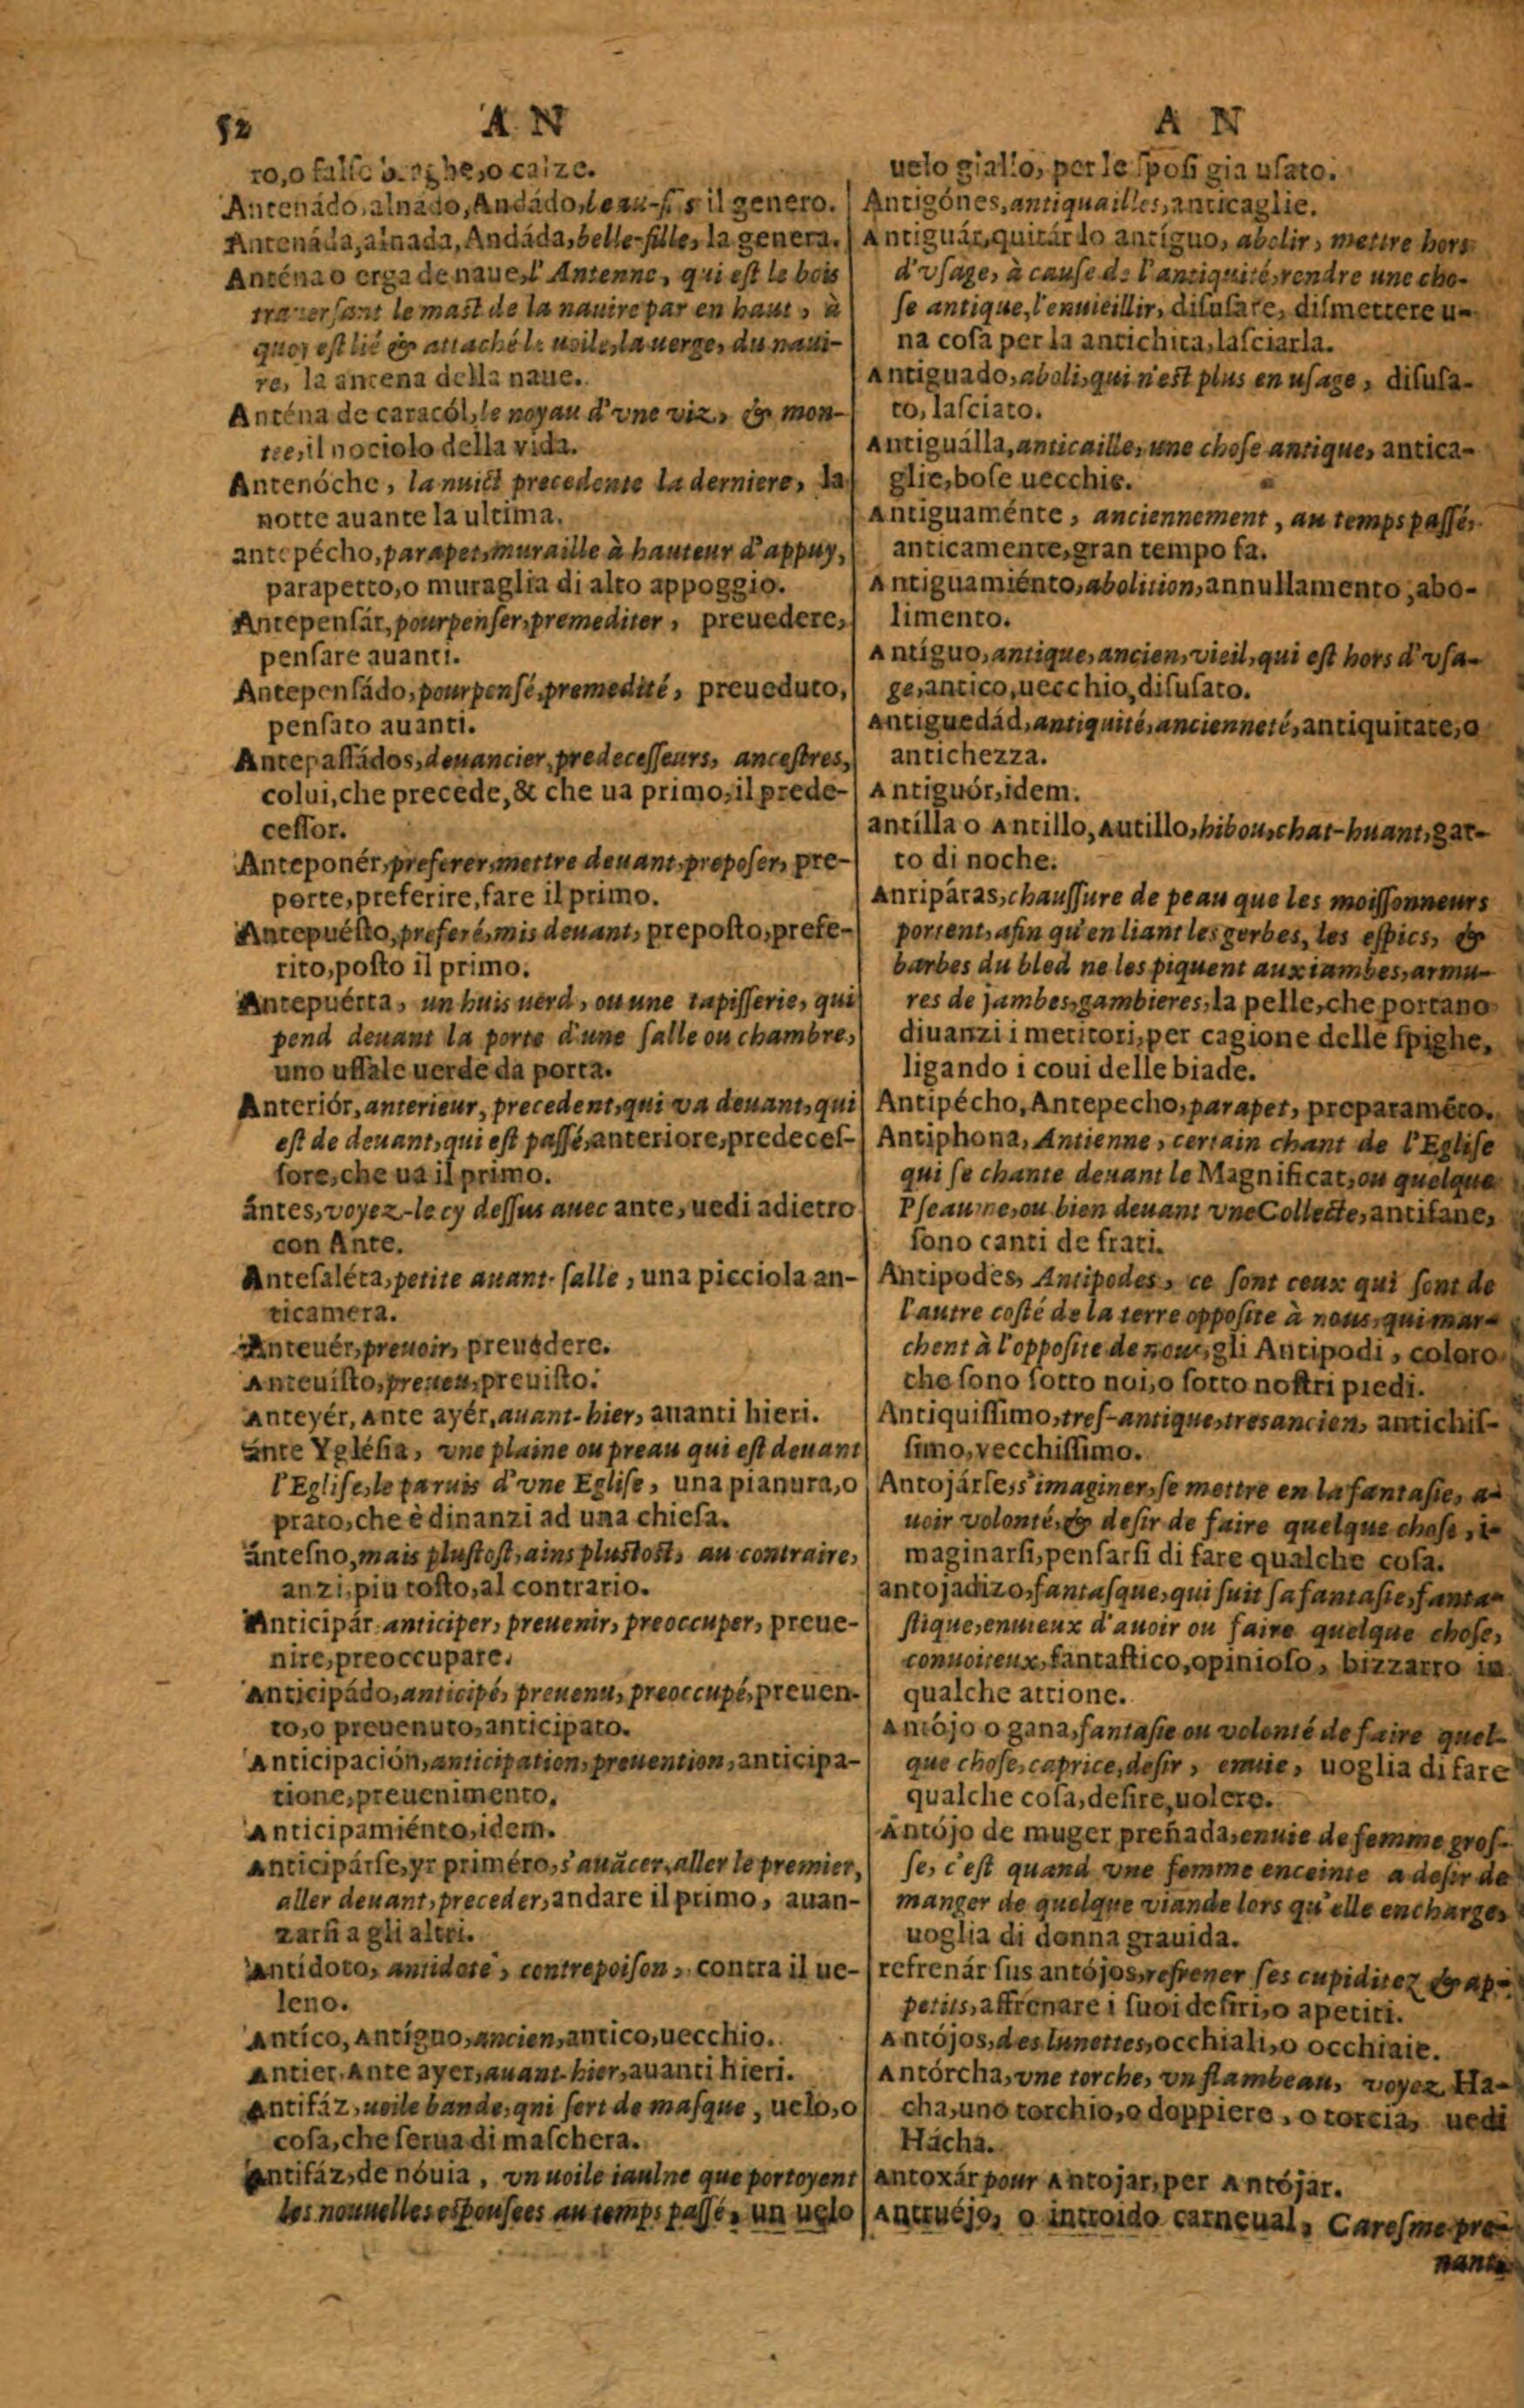 52 A N
ro, o falſe braghe, o calze.
Antenádo, alnado, Andádo, beau-fils il genero.
Antenáda, alnada, Andáda, belle-fille, la genera.
Anténa o erga de naue, l'Antenne, qui eſt le bois
trauerſant le maſt de la nauire par en haut, à
quoy eſt lié & attaché le uoile, la uerge, du naui-
re, la antena della naue.
Anténa de caracól, le noyau d'vne viz, & mon-
tee, il nociolo della vida.
Antenóche, la nuict precedente la derniere, la
notte auante la ultima.
antepécho, parapet, muraille à hauteur d'appuy,
parapetto, o muraglia di alto appoggio.
Antepenſár, pourpenſer, premediter, preuedere,
penſare auanti.
Antepenſádo, pourpenſé, premedité, preueduto,
penſato auanti.
Antepaſſádos, deuancier, predeceſſeurs, anceſtres,
colui, che precede, & che ua primo, il prede-
ceſſor.
Anteponér, preferer, mettre deuant, prepoſer, pre-
porte, preferire, fare il primo.
Antepuéſto, preferé, mis deuant, prepoſto, prefe-
rito, poſto il primo.
Antepuérta, un huis uerd, ou une tapiſſerie, qui
pend deuant la porte d'une ſalle ou chambre,
uno uſſale uerde da porta.
Anteriór, anterieur, precedent, qui va deuant, qui
eſt de deuant, qui eſt paſſé, anteriore, predeceſ-
ſore, che ua il primo.
ántes, voyez-le cy deſſus auec ante, uedi adietro
con Ante.
Anteſaléta, petite auant-ſalle, una picciola an-
ticamera.
Anteuér, preuoir, preuedere.
Anteuiſto, preueu, preuiſto.
Anteyér, Ante ayér, auant-hier, auanti hieri.
ánte Ygléſia, vne plaine ou preau qui eſt deuant
l'Egliſe, le paruis d'vne Egliſe, una pianura, o
prato, che è dinanzi ad una chieſa.
ánteſno, mais pluſtoſt, ains pluſtoſt, au contraire,
anzi, piu toſto, al contrario.
Anticipár, anticiper, preuenir, preoccuper, preue-
nire, preoccupare.
Anticipádo, anticipé, preuenu, preoccupé, preuen-
to, o preuenuto, anticipato.
Anticipación, anticipation, preuention, anticipa-
tione, preuenimento.
Anticipamiénto, idem.
Anticipárſe, yr priméro, s'auãcer, aller le premier,
aller deuant, preceder, andare il primo, auan-
zarſi a gli altri.
Antidoto, antidote, contrepoiſon, contra il ue-
leno.
Antíco, Antíguo, ancien, antico, uecchio.
Antier, Ante ayer, auant-hier, auanti hieri.
Antifáz, uoile bande, qui ſert de maſque, uelo, o
coſa, che ſerua di maſchera.
Antifáz, de nóuia, vn uoile iaulne que portoyent
les nouuelles eſpouſees au temps paſſé, un uelo
A N
uelo giallo, per le ſpoſi gia uſato.
Antigónes, antiquailles, anticaglie.
Antiguár, quitár lo antíguo, abolir, mettre hors
d'vſage, à cauſe de l'antiquité, rendre une cho-
ſe antique, l'enuieillir, diſuſare, diſmettere u-
na coſa per la antichita, laſciarla.
Antiguado, aboli, qui n'eſt plus en uſage, diſuſa-
to, laſciato.
Antiguálla, anticaille, une choſe antique, antica-
glie, boſe uecchie.
Antiguaménte, anciennement, au temps paſſé,
anticamente, gran tempo fa.
Antiguamiénto, abolition, annullamento, abo-
limento.
Antíguo, antique, ancien, vieil, qui eſt hors d'vſa-
ge, antico, uecchio, diſuſato.
Antiguedád, antiquité, ancienneté, antiquitate, o
antichezza.
Antiguór, idem.
antílla o Antillo, Autillo, hibou, chat-huant, gat-
to di noche.
Antipáras, chauſſure de peau que les moiſſonneurs
portent, afin qu'en liant les gerbes, les eſpics, &
barbes du bled ne les piquent aux iambes, armu-
res de jambes, gambieres, la pelle, che portano
diuanzi i metitori, per cagione delle ſpighe,
ligando i coui delle biade.
Antipécho, Antepecho, parapet, preparamẽto.
Antiphona, Antienne, certain chant de l'Egliſe
qui ſe chante deuant le Magnificat, ou quelque
Pſeaume, ou bien deuant vne Collecte, antifane,
ſono canti de frati.
Antipodes, Antipodes, ce ſont ceux qui ſont de
l'autre coſté de la terre oppoſite à nous, qui mar-
chent à l'oppoſite de nous, gli Antipodi, coloro
che ſono ſotto noi, o ſotto noſtri piedi.
Antiquiſſimo, treſ-antique, tresancien, antichiſ-
ſimo, vecchiſſimo.
Antojárſe, s'imaginer, ſe mettre en la fantaſie, a-
uoir volonté, & deſir de faire quelque choſe, i-
maginarſi, penſarſi di fare qualche coſa.
antojadizo, fantaſque, qui ſuit ſa fantaſie, fanta-
ſtique, enuieux d'auoir ou faire quelque choſe,
conuoiteux, fantaſtico, opinioſo, bizzarro in
qualche attione.
Antójo o gana, fantaſie ou volonté de faire quel-
que choſe, caprice, deſir, enuie, uoglia di fare
qualche coſa, deſire, uolere.
Antójo de muger preñada, enuie de femme groſ-
ſe, c'eſt quand vne femme enceinte a deſir de
manger de quelque viande lors qu'elle encharge,
uoglia di donna grauida.
refrenár ſus antójos, refrener ſes cupiditez & ap-
petits, affrenare i ſuoi deſiri, o apetiti.
Antójos, des lunettes, occhiali, o occhiaie.
Antórcha, vne torche, vn flambeau, voyez Ha-
cha, uno torchio, o doppiere, o torcia, uedi
Hácha.
Antoxár pour Antojar, per Antójar.
Antruéjo, o introido carneual, Careſme-pre-
nant